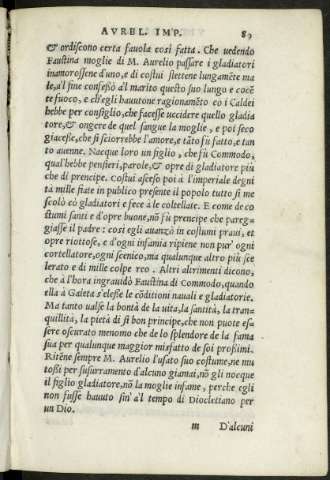 AVREL. IMP. 89
& ordiscono certa fauola così fatta. Che uedendo
Faustina moglie di M. Aurelio passare i gladiatori
inamorossene d'uno, e di costui stettene lungamēte ma
le, a'l fine confessò a'l marito questo suo lungo e cocē
te fuoco, e ch'egli hauutone ragionamēto co i Caldei
hebbe per consiglio, che facesse uccidere quello gladia
tore, & ongere de quel sangue la moglie, e poi seco
giacesse, che si sciorrebbe l'amore, e tāto fu fatto, e tan
to auenne. Nacque loro un figlio, che fù Commodo,
qual'hebbe pensieri, parole, & opre di gladiatore più
che di prencipe. Costui asceso poi à l'imperiale degni
tà mille fiate in publico presente il popolo tutto si me
scolò cò gladiatori e fece à le coltellate. E come de co
stumi santi e d'opre buone, nō fù prencipe che pareg-
giasse il padre: così egli auanzò in costumi praui, et
opre riottose, e d'ogni infamia ripiene non pur' ogni
cortellatore, ogni scenico, ma qualunque altro più sce
lerato e di mille colpe reo. Altri altrimenti dicono,
che à l'hora ingrauidò Faustina di Commodo, quando
ella à Gaieta s'elesse le cōditioni nauali e gladiatorie.
Ma tanto ualse la bontà de la uita, la santità, la tran-
quillità, la pietà di sì bon principe, che non puote es-
sere oscurato menomo che de lo splendore de la fama
sua per qualunque maggior misfatto de soi prossimi.
Ritēne sempre M. Aurelio l'usato suo costume, ne mu
tossi per susurramento d'alcuno giamai, nō gli nocque
il figlio gladiatore, nō la moglie infame, perche egli
non fusse hauuto sin' à'l tempo di Diocletiano per
un Dio.
m D'alcuni